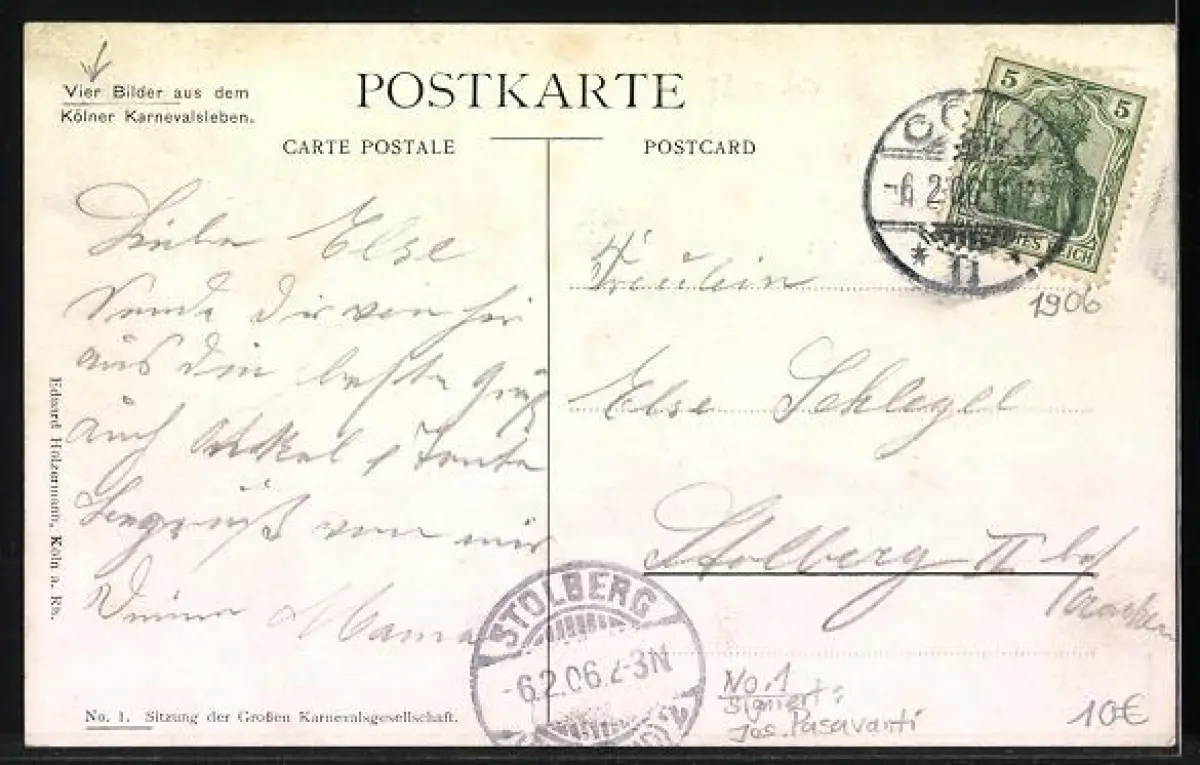 Vier Bilder aus dem
Kölner Karnevalsleben.
POSTKARTE
CARTE POSTALE
POSTCARD
5 5
-6.2.06
* n
1906
Else
Sende Dir von hir
aus die beste Grüß
auch Onkel & Tante
von mir
Deine Mama
Fräulein
Else Schlegel
Stolberg II b/
Aachen
Eduard Holzermann, Köln a. Rh.
STOLBERG
-6.2.06.2-3N
No. 1. Sitzung der Großen Karnevalsgesellschaft.
No.1
signiert:
Jos. Pasavanti
10€